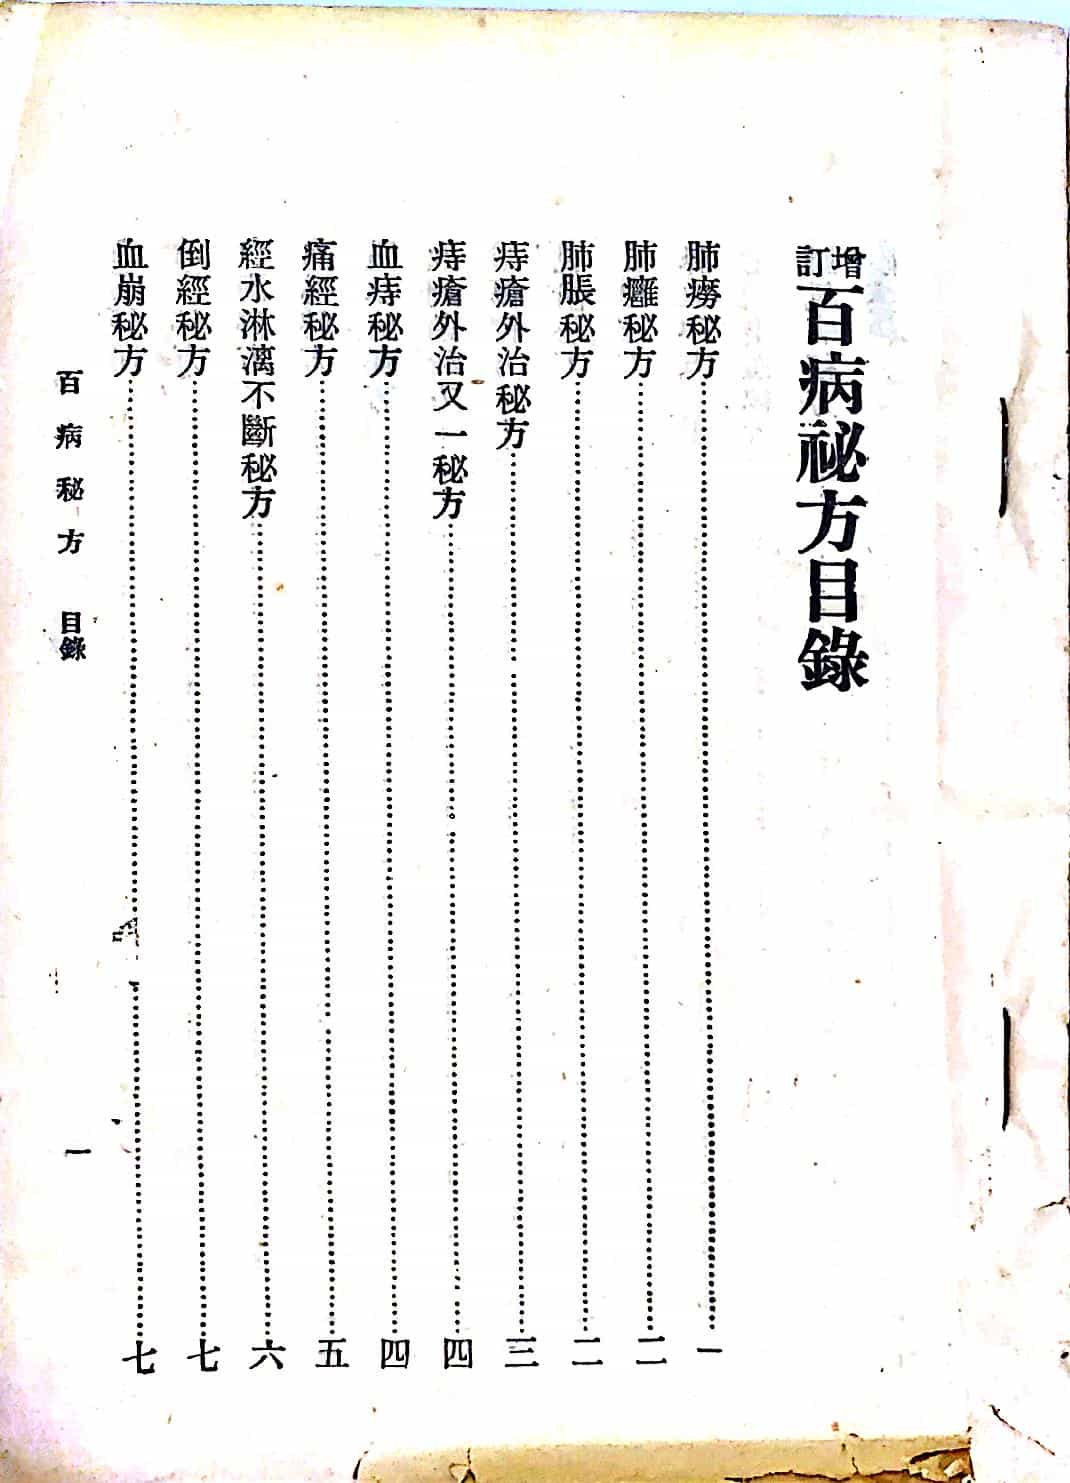 增訂百病祕方目錄
肺癆秘方……一
肺癰秘方……二
肺脹秘方……二
痔瘡外治秘方……三
痔瘡外治又一秘方……四
血痔秘方……四
痛經秘方……五
經水淋漓不斷秘方……六
倒經秘方……七
血崩秘方……七
百病秘方 目錄 一